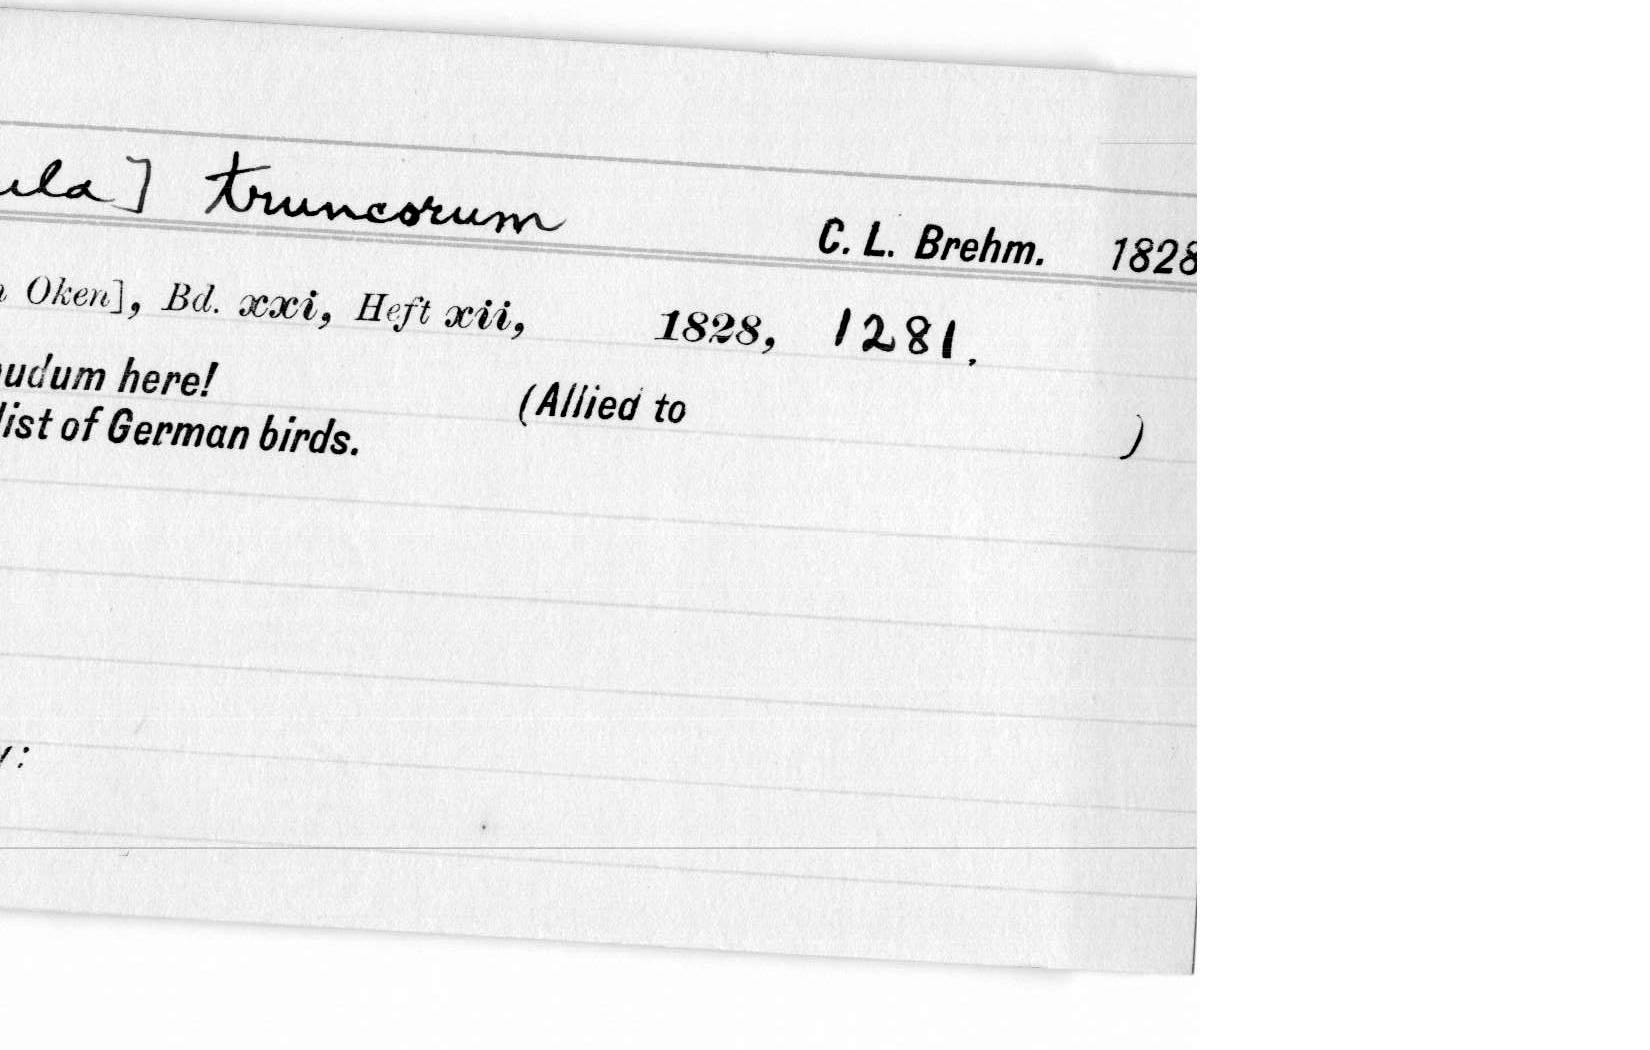 ula] truncorum C. L. Brehm. 1828
n Oken], Bd. xxi, Heft xii, 1828, 1281.
udum here! (Allied to )
list of German birds.
y: